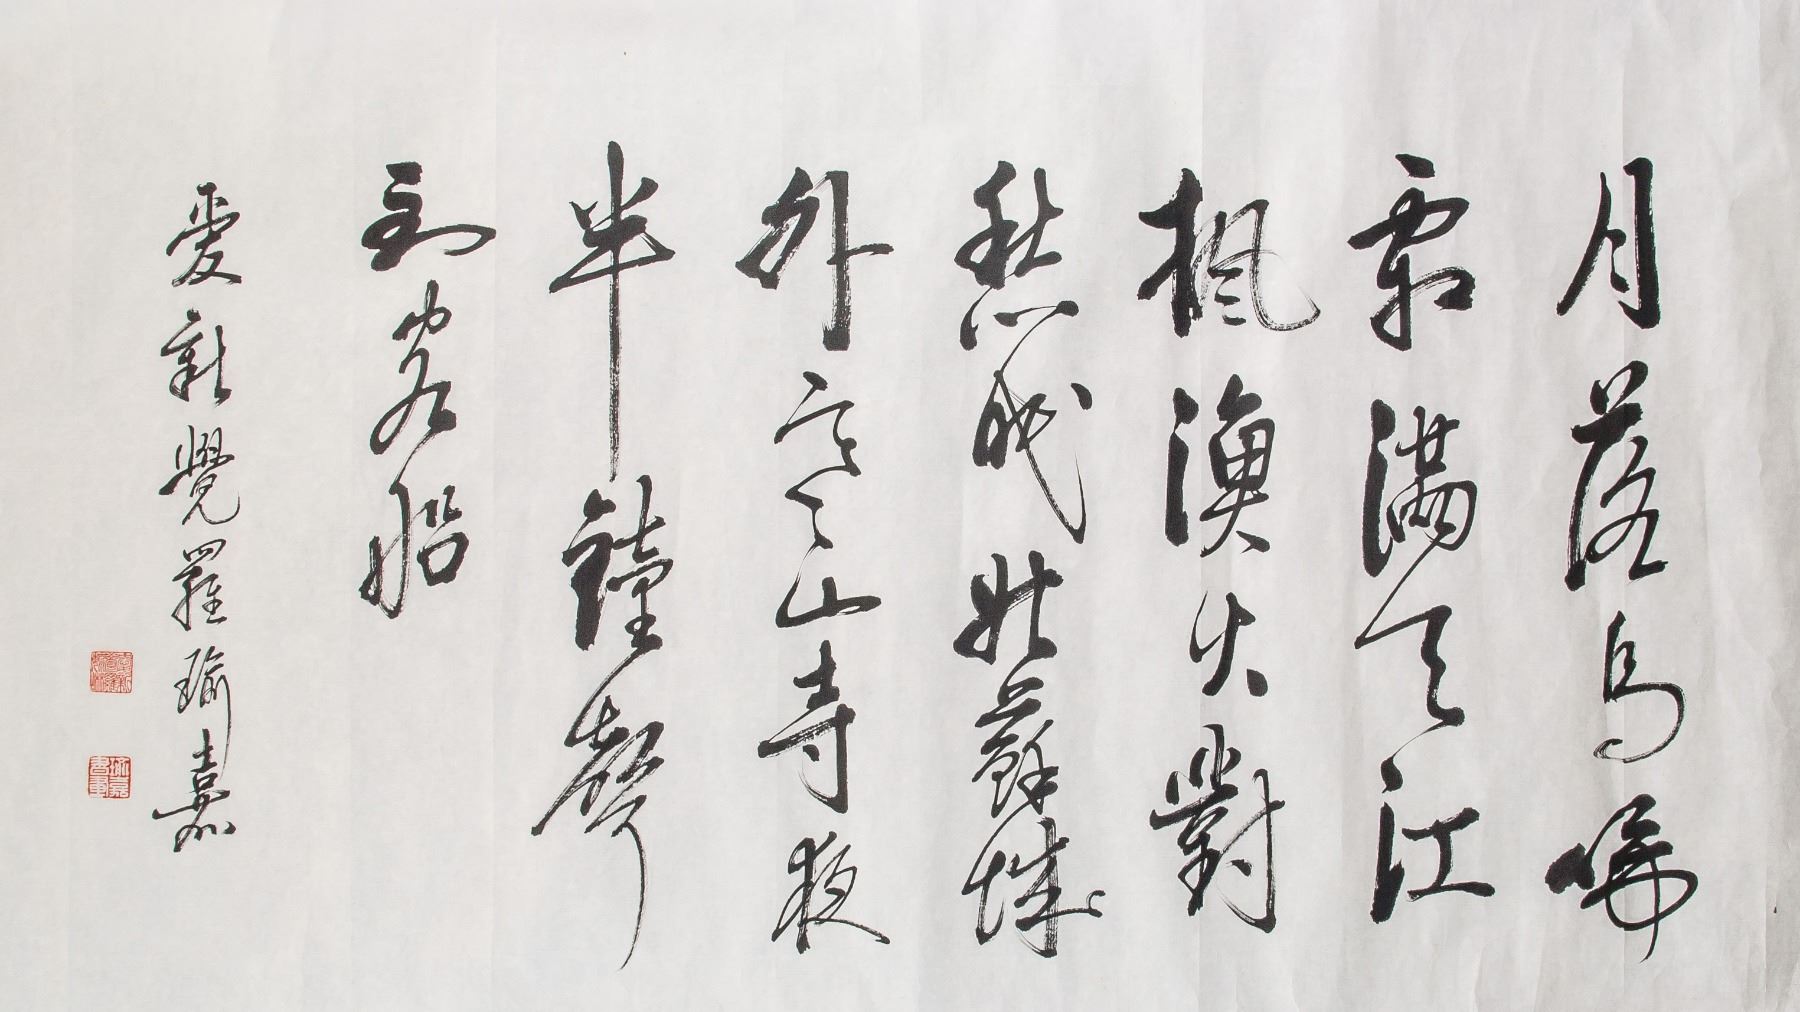 月落烏啼
霜滿天江
楓漁火對
愁眠姑蘇城
外寒山寺夜
半鐘聲
到客船
愛新覺羅瑜嘉
瑜嘉書畫